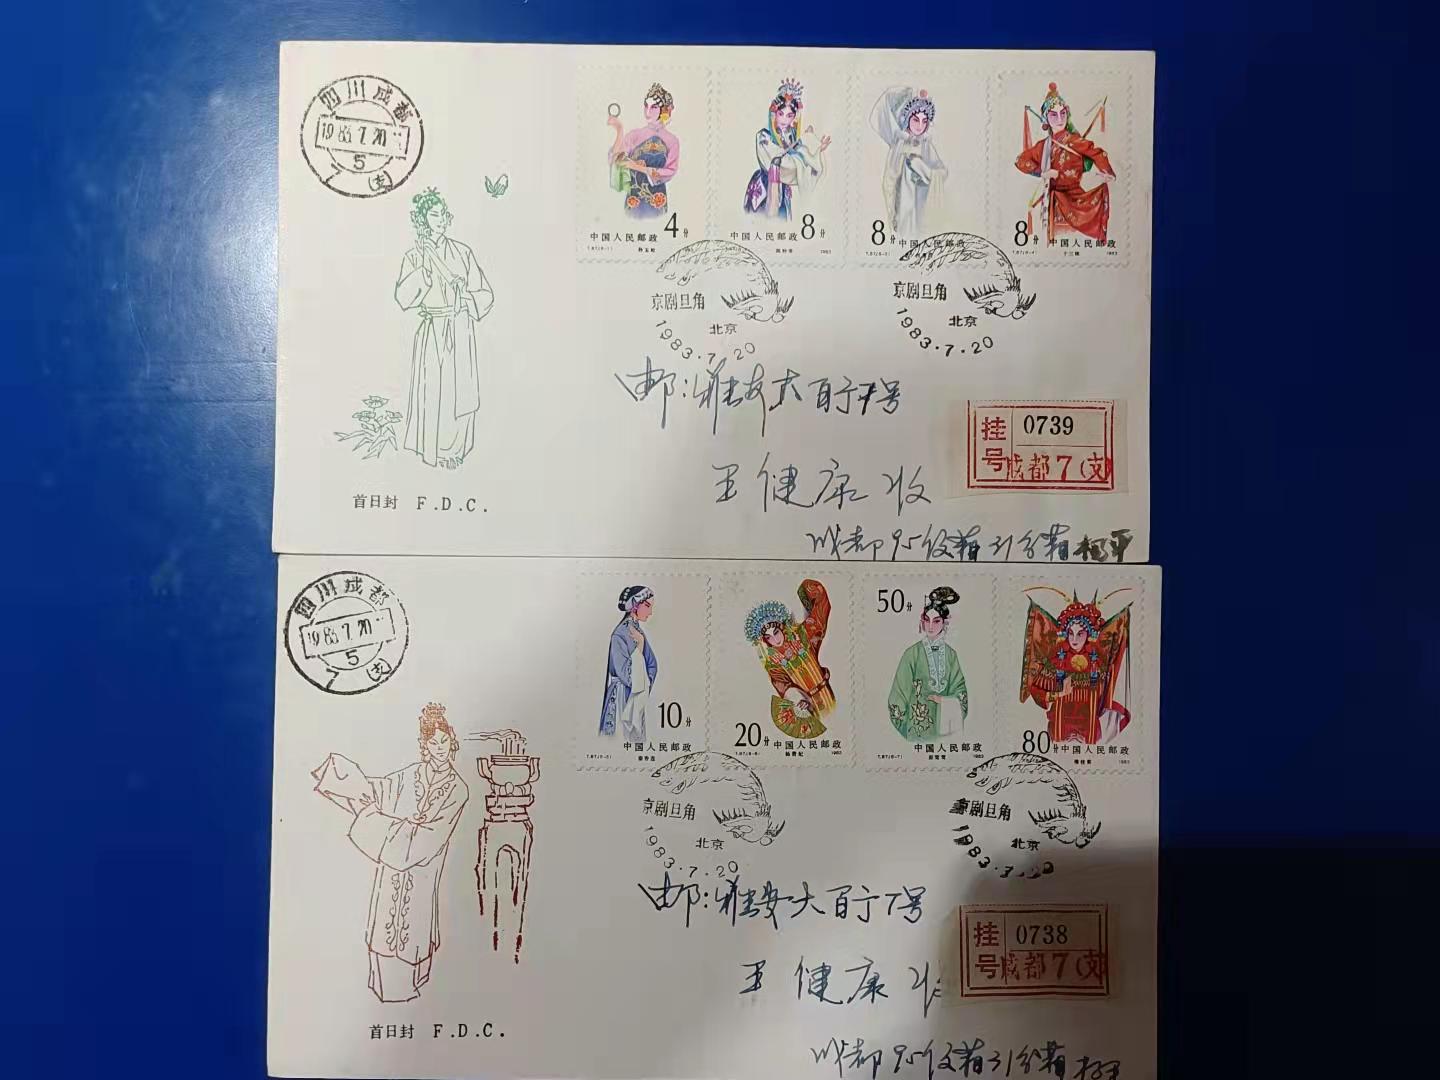 四川成都
1983.7.20
5
7(支)
4分
中国人民邮政
T.87.(8-1)
孙玉姣
8分
中国人民邮政
1983
8分
中国人民邮政
T.87.(8-3)
8分
中国人民邮政
T.87.(8-4)
1983
京剧旦角
北京
1983.7.20
京剧旦角
北京
1983.7.20
邮:雅安大百宁7号
挂号
0739
成都7(支)
王健康收
首日封 F.D.C.
成都95信箱31分箱 杨平
四川成都
1983.7.20
5
7(支)
10分
中国人民邮政
T.87.(8-5)
秦香莲
20分
中国人民邮政
T.87.(8-6)
杨贵妃
1983
50分
中国人民邮政
T.87.(8-7)
崔莺莺
1983
80分
中国人民邮政
穆桂英
1983
京剧旦角
北京
1983.7.20
京剧旦角
北京
1983.7.20
邮:雅安大百宁7号
挂号
0738
成都7(支)
王健康收
首日封 F.D.C.
成都95信箱31分箱